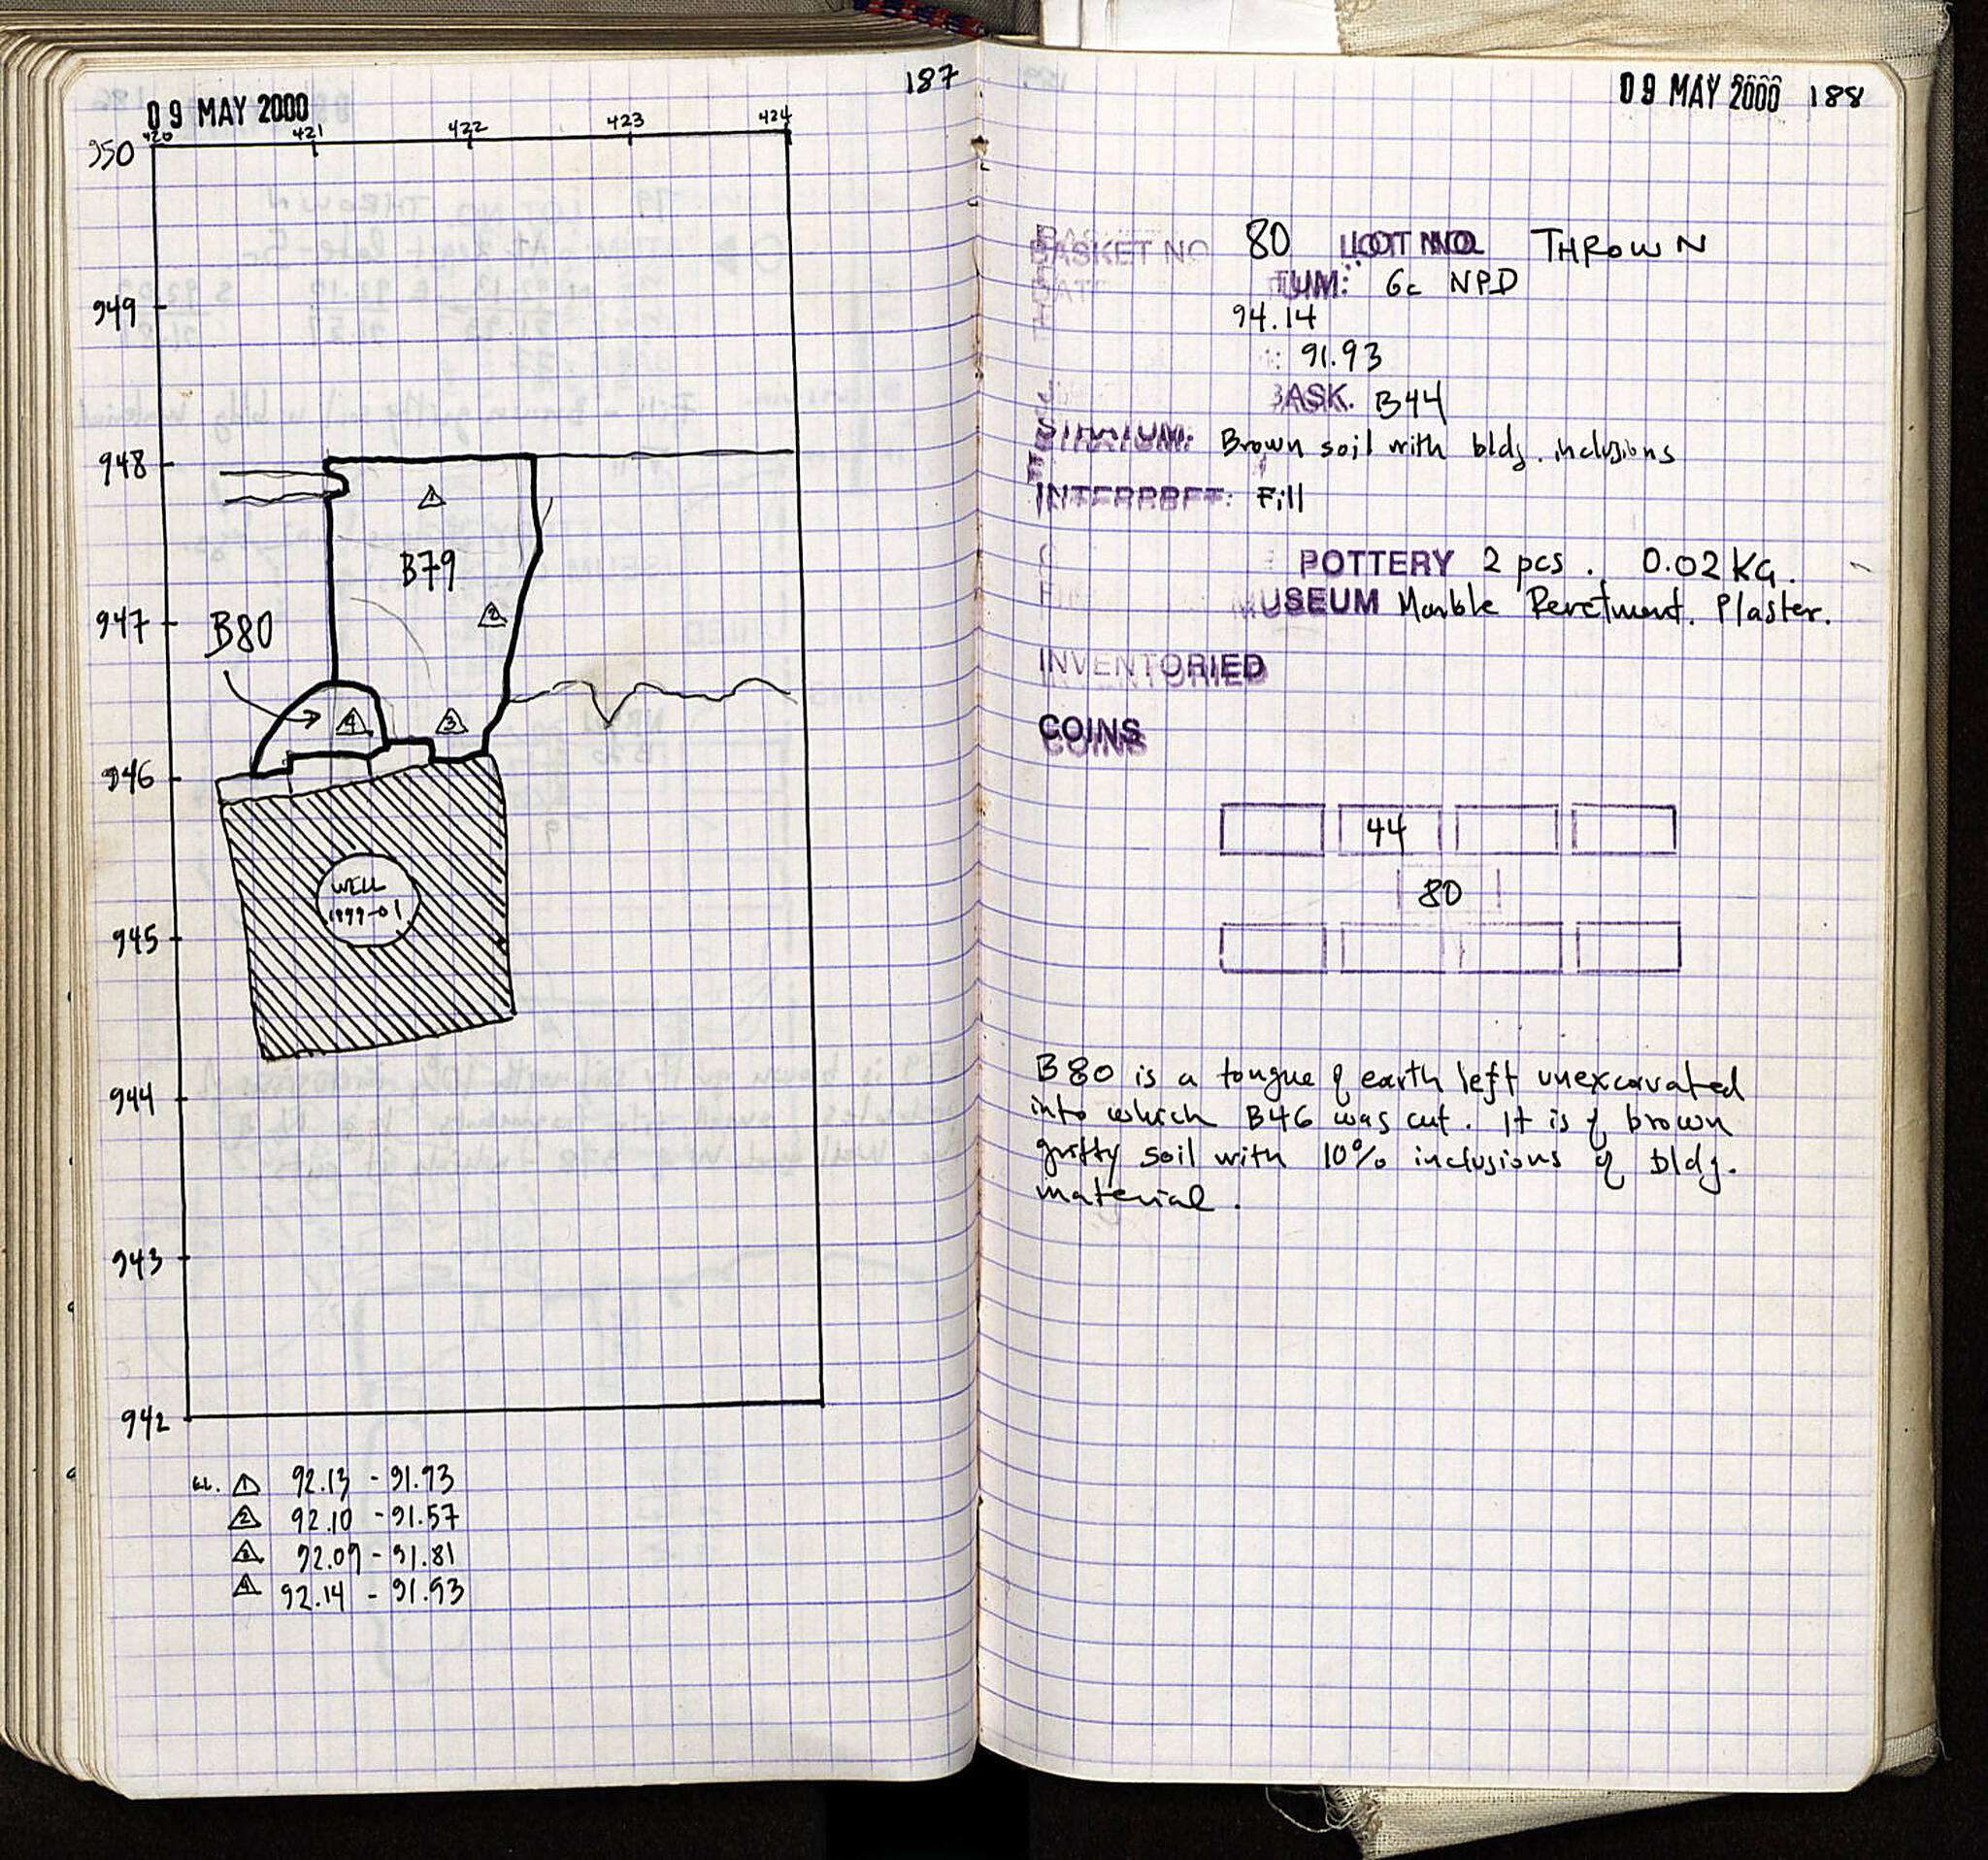 09 MAY 2000
187
420 421 422 423 424
950
949
948
947
946
945
944
943
942
1
B79
2
B80
4
3
WELL
1999-01
EL. 1 92.13 - 91.93
2 92.10 - 91.57
3 92.09 - 91.81
4 92.14 - 91.93
09 MAY 2000 188
BASKET NO 80 LOT NO THROWN
TUM: 6c NPD
94.14
91.93
BASK. B44
STRATUM: Brown soil with bldg. inclusions
INTERPRET: Fill
POTTERY 2 pcs. 0.02 KG.
MUSEUM Marble Revetment. Plaster.
INVENTORIED
COINS
44
80
B80 is a tongue of earth left unexcavated
into which B46 was cut. It is of brown
gritty soil with 10% inclusions of bldg.
material.